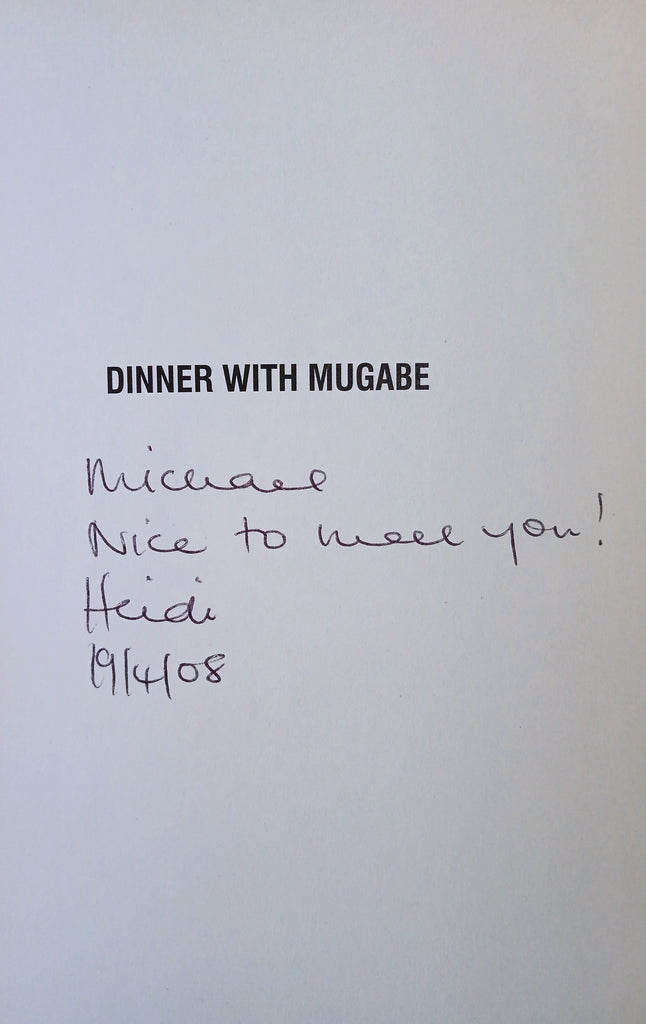 DINNER WITH MUGABE
Michael
Nice to meet you!
Heidi
19/4/08